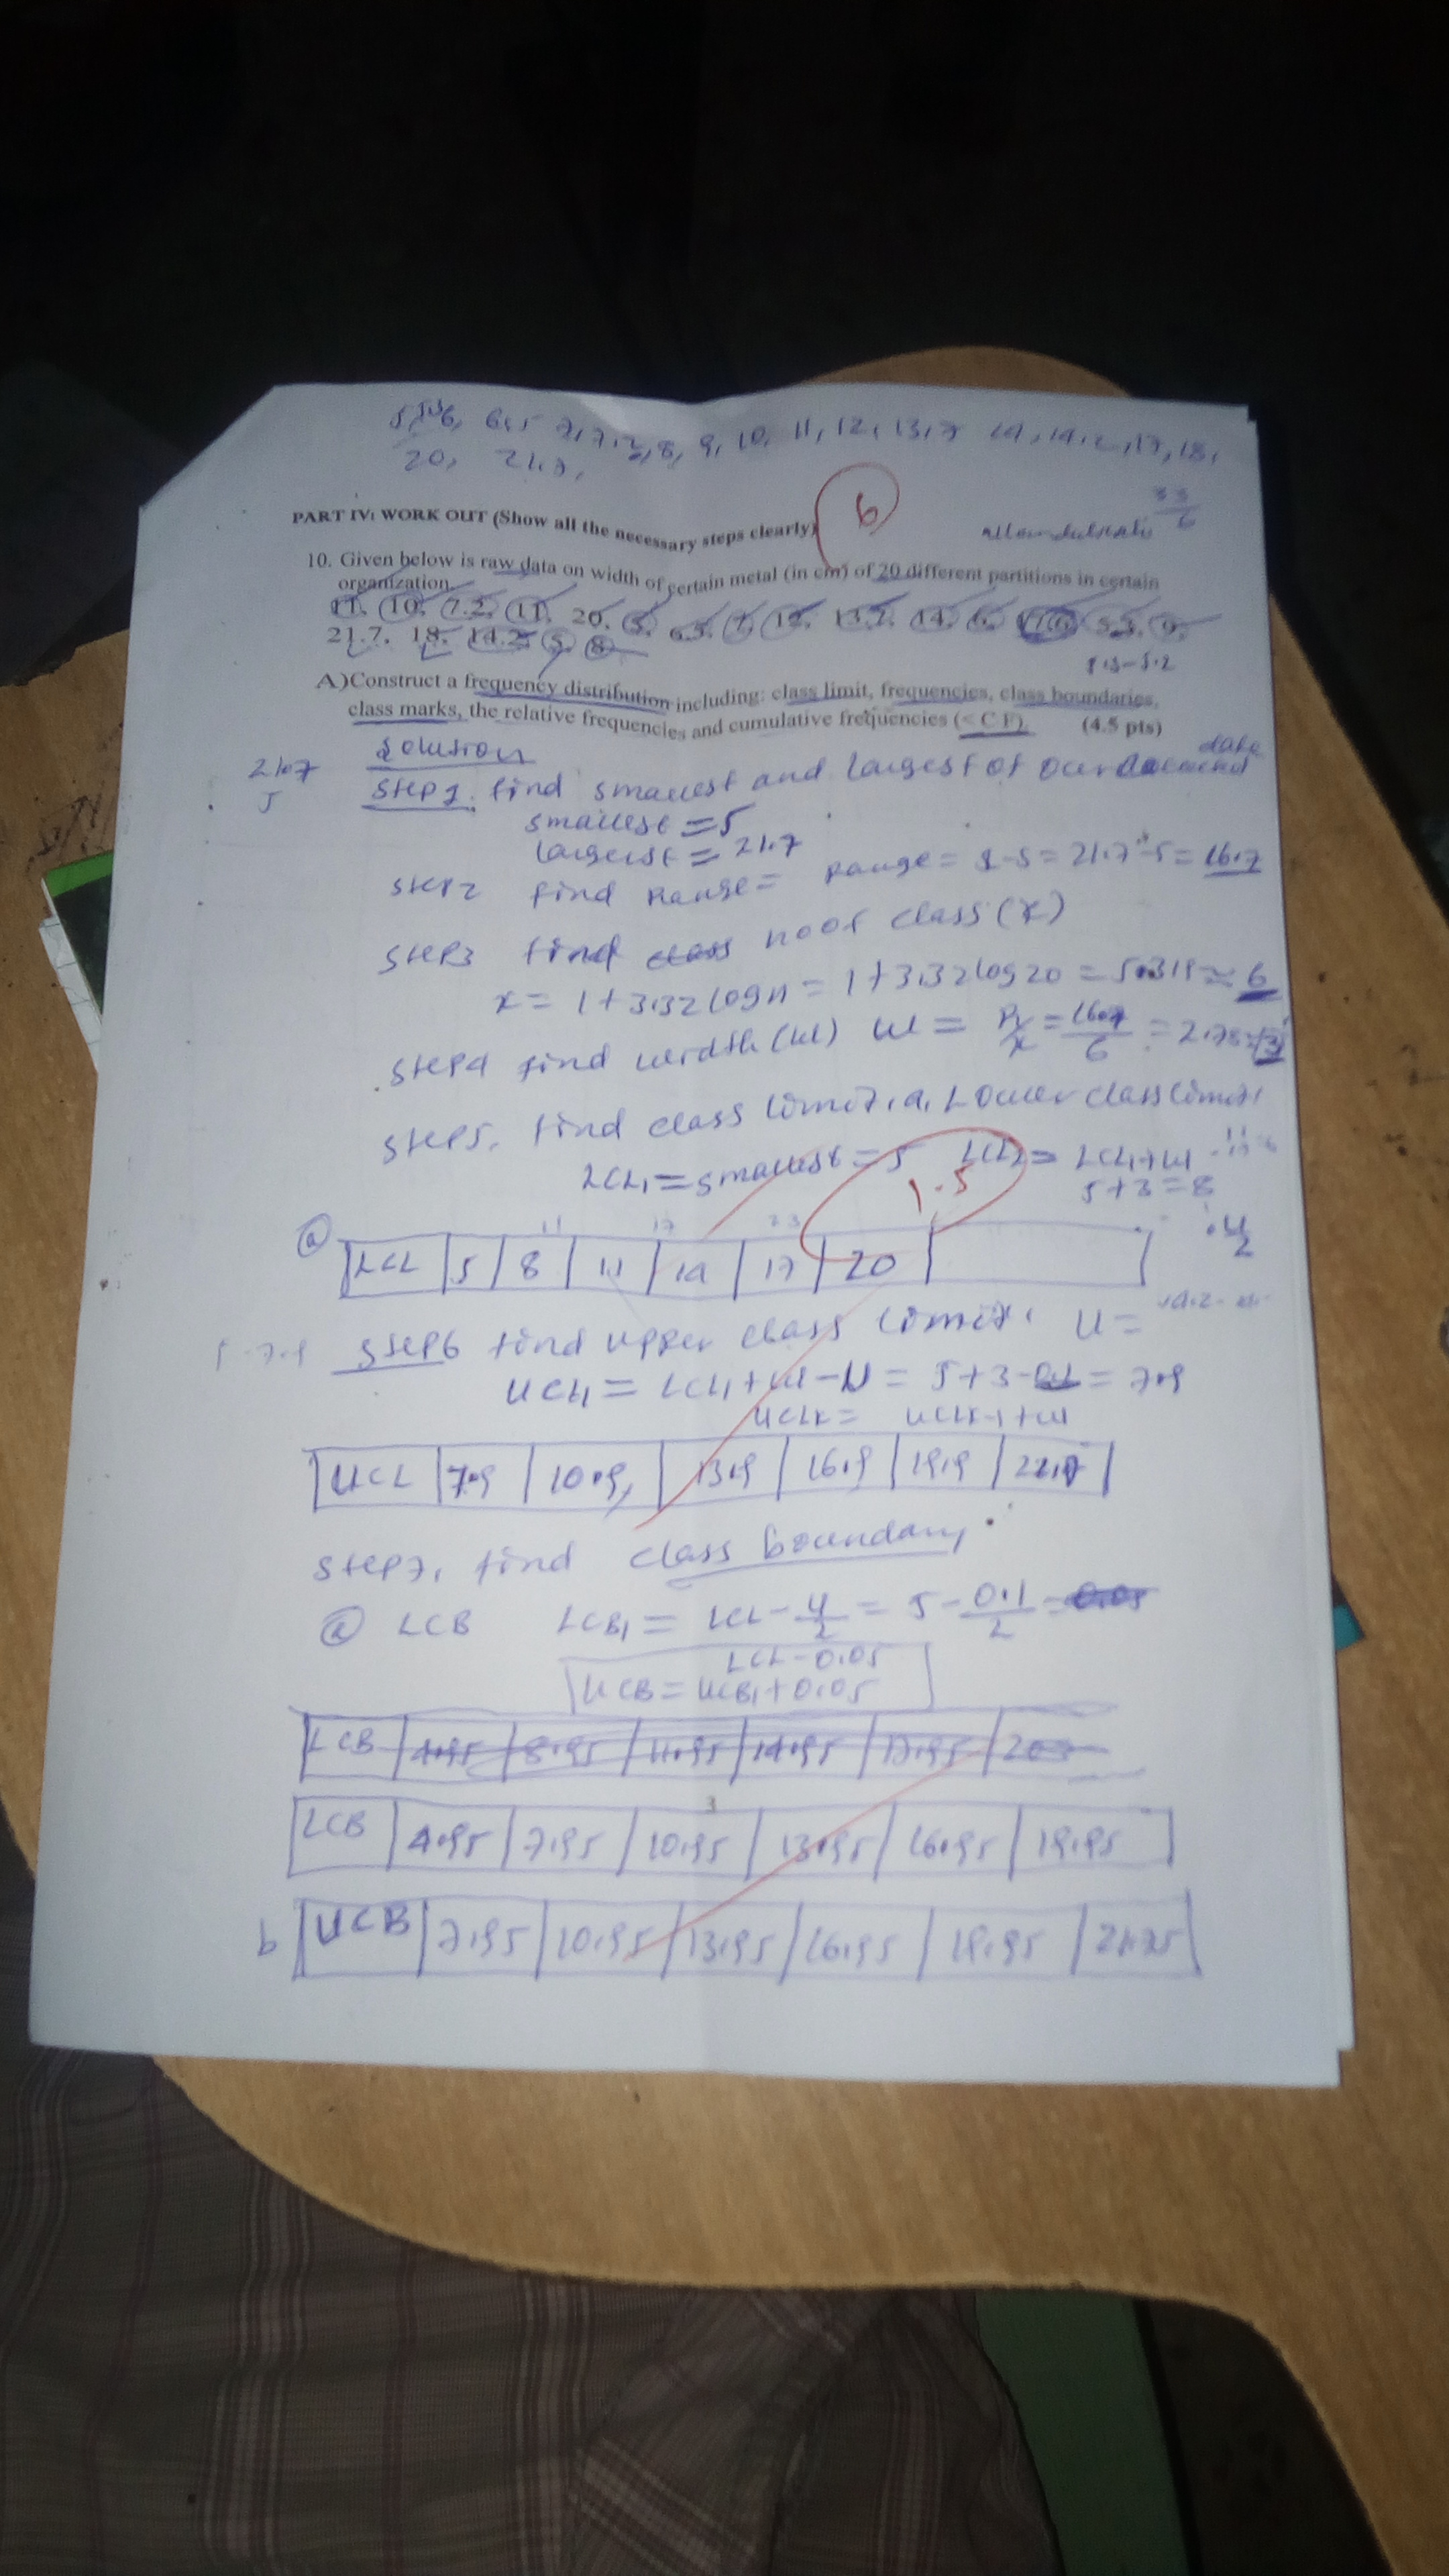 20, 21.7,
6
PART IV: WORK OUT (Show all the necessary steps clearly)
10. Given below is raw data on width of certain metal (in cm) of 20 different partitions in certain
organization.
11, 10, 7.2, 11, 20, 5, 6.5, 7, 12, 13.7, 14, 6, 5.5, 9,
21.7, 18, 14.2, 5, 8
A)Construct a frequency distribution including: class limit, frequencies, class boundaries,
class marks, the relative frequencies and cumulative frequencies (< C F). (4.5 pts)
21.7
5
Solution
Step 1. find smallest and largest of our data
smallest = 5
largest = 21.7
Step 2 find Range = Range = L-S = 21.7-5 = 16.7
Step 3 find no of class (K)
K = 1+3.32 log n = 1+3.32 log 20 = 5.319 ≈ 6
Step 4 find width (W) W = R/K = 16.7/6 = 2.78 ≈ 3
Step 5. find class limit, a. Lower class limit
LCL1 = smallest = 5 LCL2 = LCL1+W
5+3=8
1.5
a
LCL 5 8 11 14 17 20
Step 6 find upper class limit. U =
UCL1 = LCL1+W-U = 5+3-0.1 = 7.9
UCLK = UCLK-1+W
UCL 7.9 10.9, 13.9 16.9 19.9
Step 7, find class boundary
a LCB LCB1 = LCL-U/2 = 5-0.1/2 =
LCL-0.05
UCB = UCB1+0.05
LCB 4.95 8.95 11.95 14.95 17.95
3
LCB 4.95 7.95 10.95 13.95 16.95 19.95
b UCB 7.95 10.95 13.95 16.95 19.95